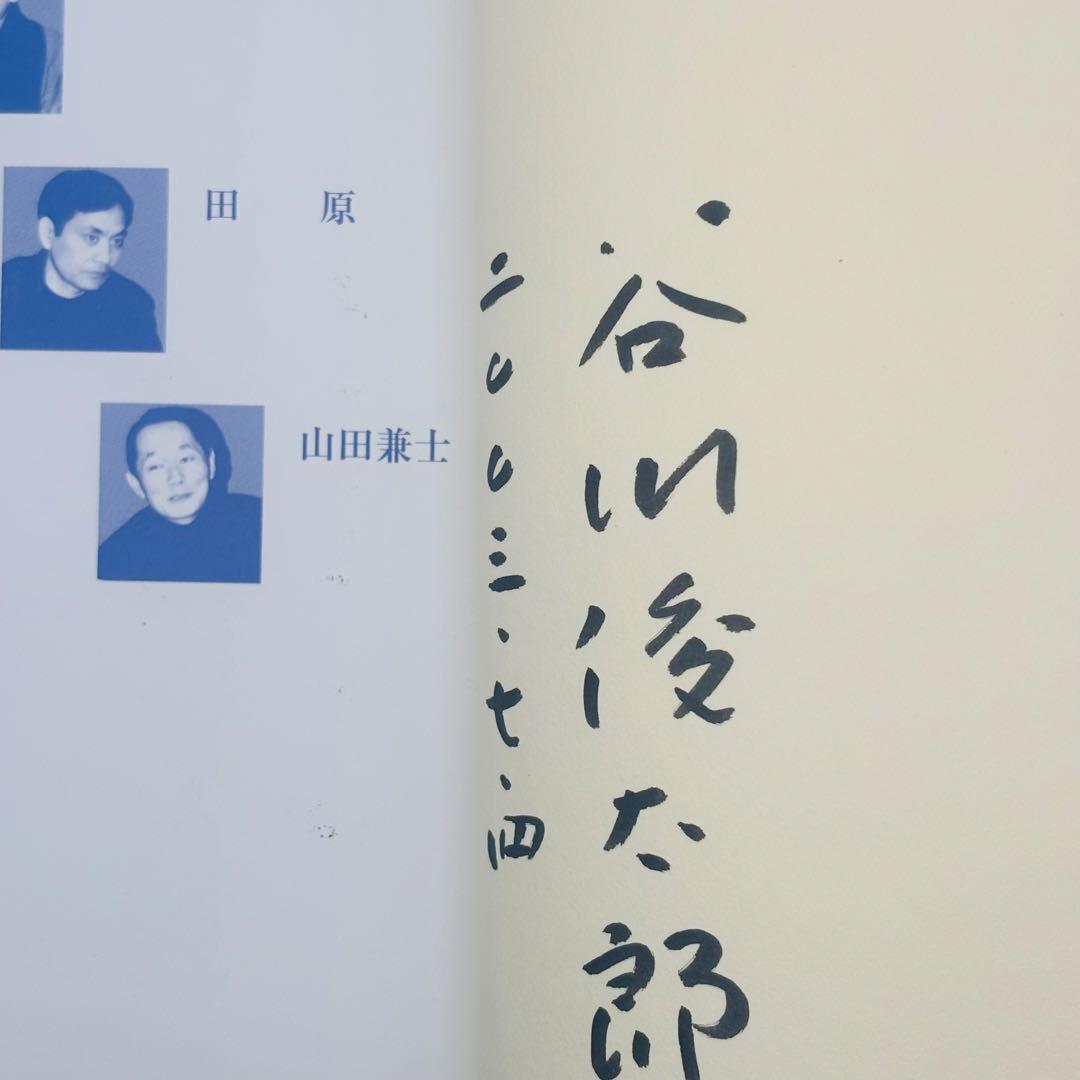 田 原
山田兼士
谷川俊太郎
二〇〇三・七・四